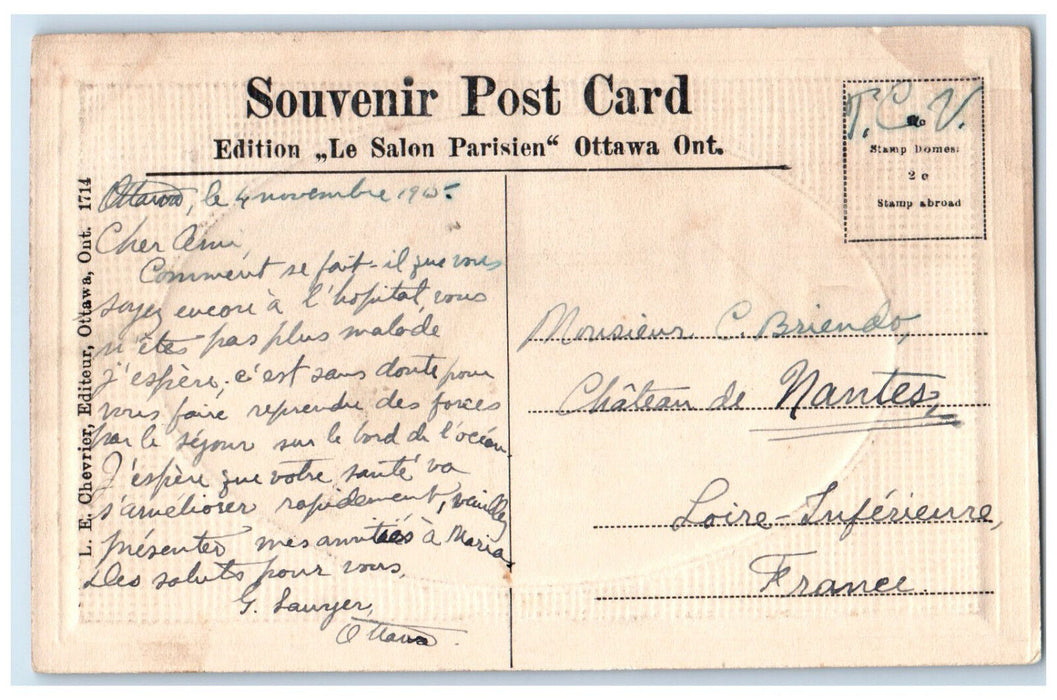 Souvenir Post Card
Edition „Le Salon Parisien“ Ottawa Ont.
T. C. V.
Stamp Domes:
2 c
Stamp abroad
L. E. Chevrier, Editeur, Ottawa, Ont. 1714
Ottawa, le 4 novembre 1905
Cher Ami,
Comment se fait-il que vous
soyez encore à l'hopital, vous
n'êtes pas plus malade
j'espère, c'est sans doute pour
vous faire reprendre des forces
par le séjour sur le bord de l'océan.
J'espère que votre santé va
s'améliorer rapidement, veuillez
présenter mes amitiés à Maria
Des saluts pour vous,
G.
Ottawa.
Monsieur C. Briendo,
Château de Nantes,
Loire-Inférieure,
France.